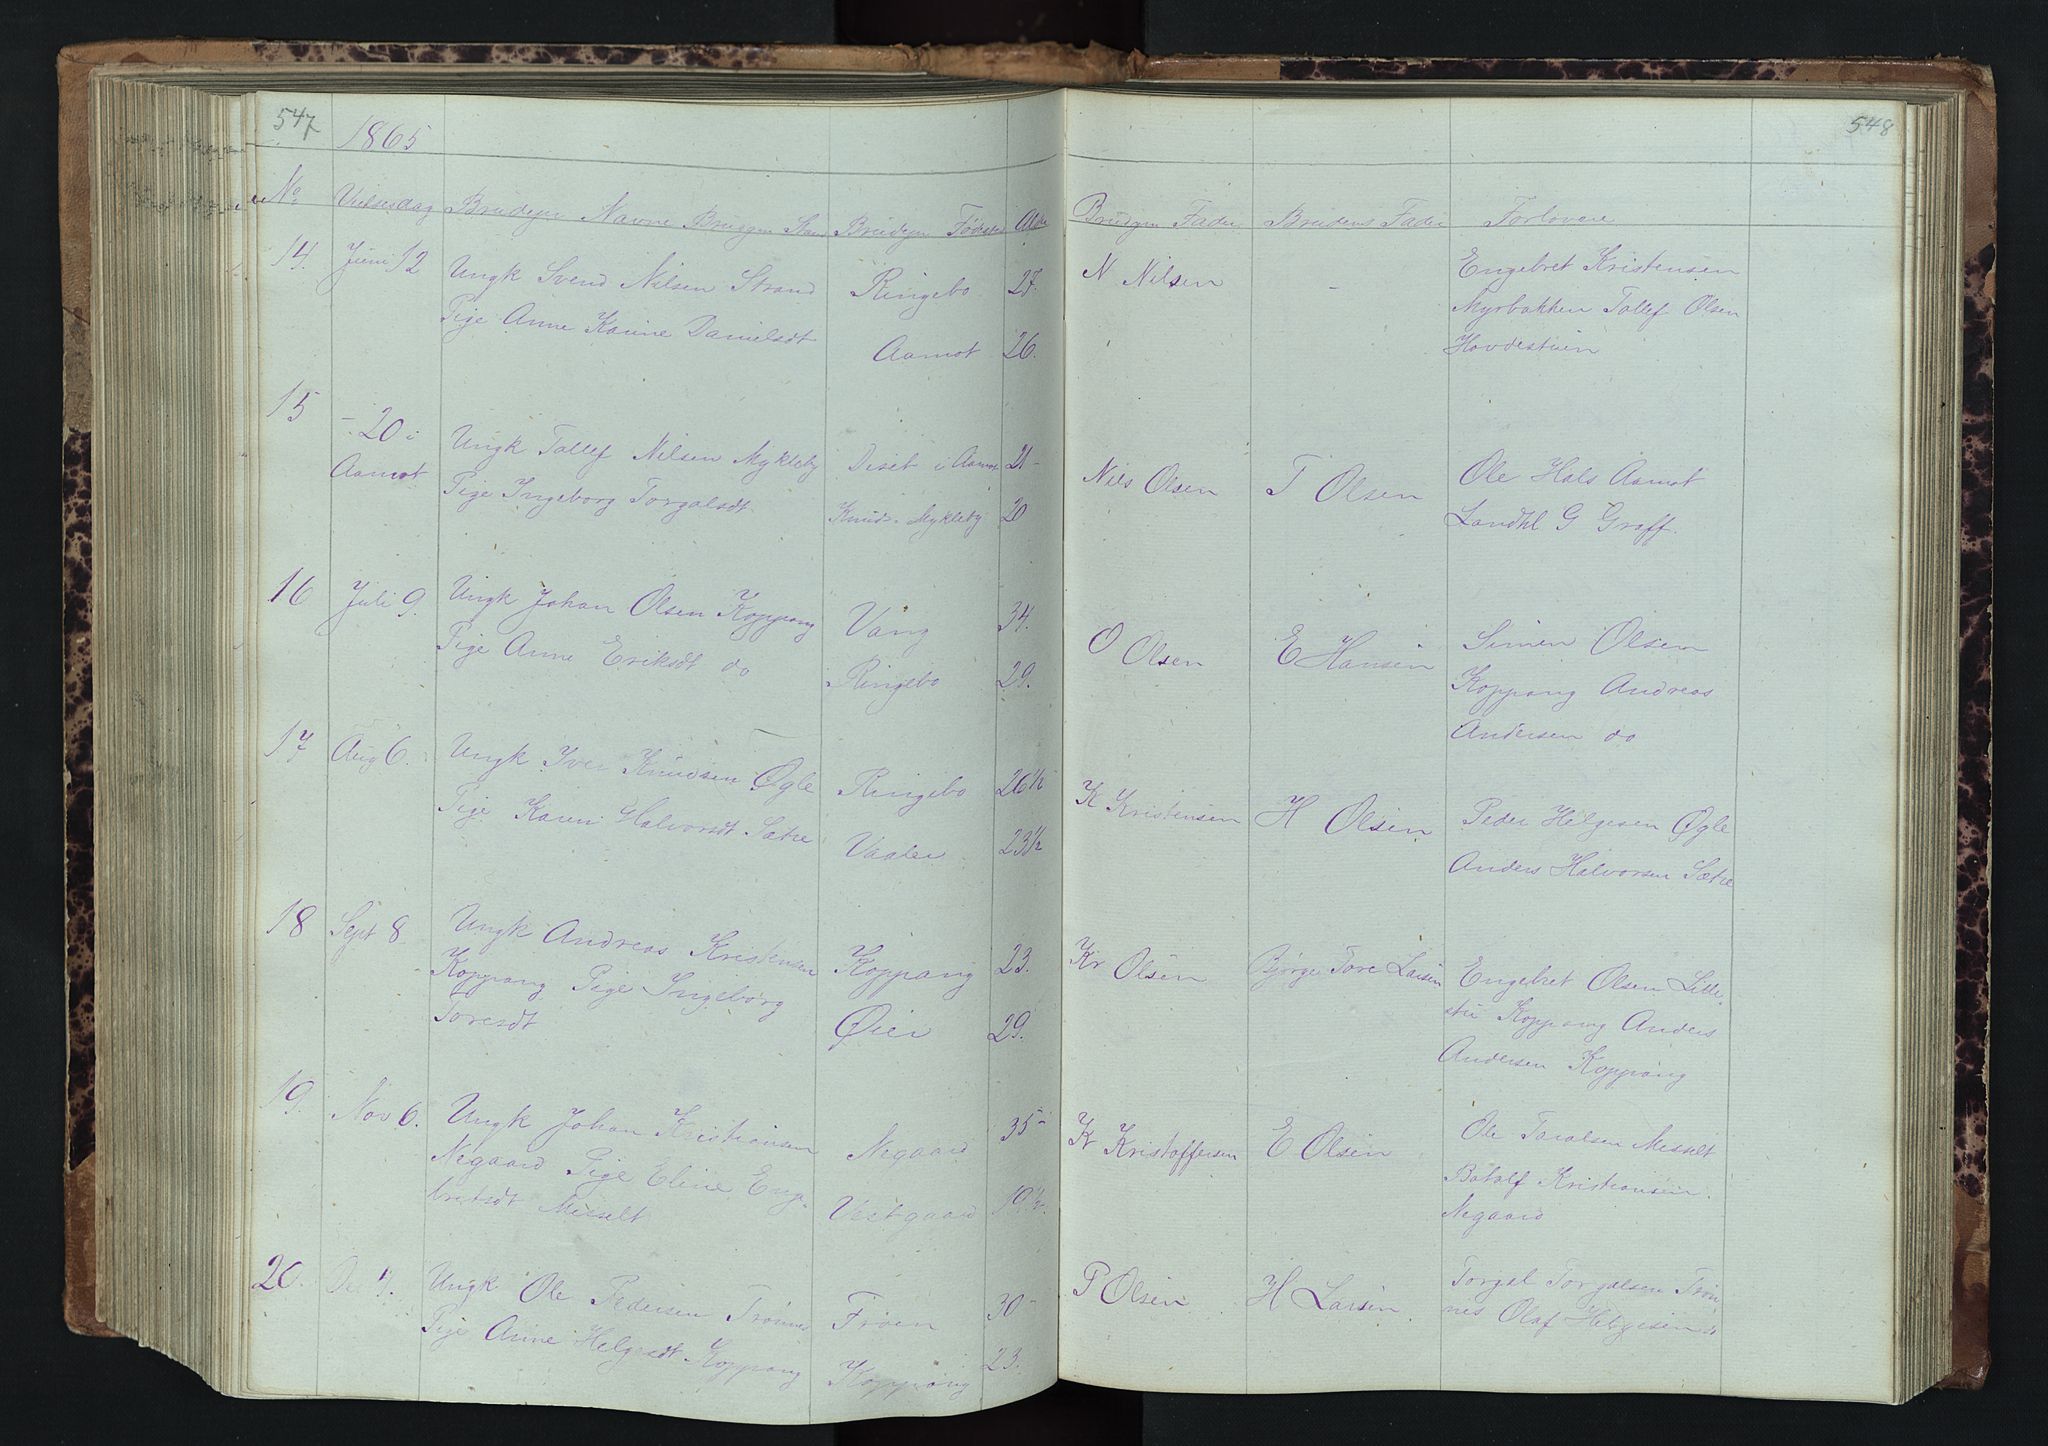 547
1865
No Vielsesdag Brudeps Navne Brudgm Stan Brudeps Fødested Alder
14. Juni 12 Ungk Svend Nilsen Strand Ringebo 27.
Pige Anne Karine Danielsdt Aamot 26.
15 - 20 i Ungk Tollef Nilsen Mykleby Diset i Aamot 21 -
Aamot Pige Ingeborg Torgalsdt Knuds. Mykleby 20
16 Juli 9. Ungk Johan Olsen Koppang Vang 34.
Pige Anne Eriksdt do Ringebo 29.
17 Aug 6. Ungk Iver Knudsen Øgle Ringebo 26 1/2
Pige Karen Halvorsdt Sætre Vaaler 23 1/2
18 Sept 8 Ungk Andreas Kristensen Koppang 23.
Koppang Pige Ingeborg Øier 29.
Toresdt
19. Nov 6. Ungk Johan Kristiansen Negaard 35 -
Negaard Pige Eline Enge-
bretsdt Messelt Vestgaard 19 1/2.
20. Ungk Ole Pedersen Trønnes Froen 30 -
Pige Anne Helgesdt Koppang Koppang 23.
548
Brudgm Fader Brudens Fader Forlovere
N Nilsen - Engebret Kristensen
Myrbakken Tollef Olsen
Hovdestuen
Nils Olsen T Olsen Ole Hals Aamot
Landhl G Graff.
O Olsen E Hansen Simen Olsen
Koppang Andreas
Andersen do
K Kristensen H Olsen Peder Helgesen Øgle
Anders Halvorsen Sætre
Kr Olsen Bjørge Tore Larsen Engebret Olsen Lille-
stu Koppang Anders
Andersen Koppang
Kr Kristoffersen E Olsen Ole Taralsen Messelt
Botolf Kristiansen
Negaard
P Olsen H Larsen Torgal Torgalsen Trøn
nes Olaf Helgesen